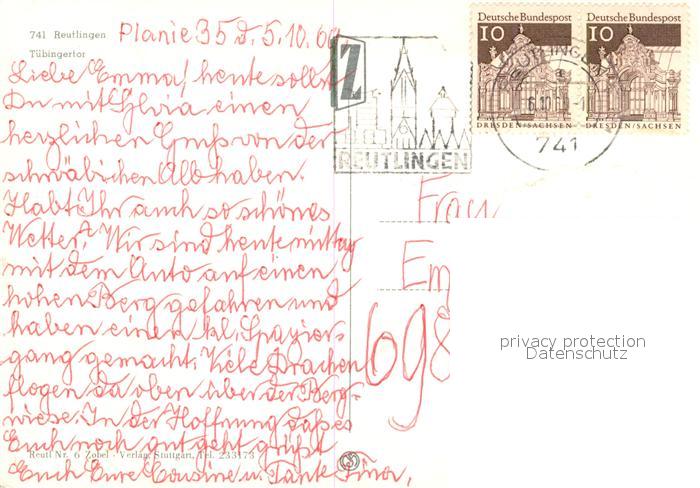 741 Reutlingen
Tübingertor
Planie 35 d. 5.10.69
Liebe Emma! heute sollst
Du mit Sylvia einen
herzlichen Gruß von der
schwäbischen Alb haben.
Habt Ihr auch so schönes
Wetter? Wir sind heute mittag
mit dem Auto auf einen
hohen Berg gefahren und
haben einen kl. Spazier-
gang gemacht. Viele Drachen
flogen da oben über der Berg-
wiese. In der Hoffnung daß es
Euch noch gut geht grüßt
Euch Eure Cousine u. Tante
Reutl Nr. 6 Zobel - Verlag, Stuttgart, Tel. 233173
Z
REUTLINGEN
Deutsche Bundespost
10
DRESDEN/SACHSEN
Deutsche Bundespost
10
DRESDEN/SACHSEN
REUTLINGEN
a
6.10.69
741
Frau
Em
698
privacy protection
Datenschutz